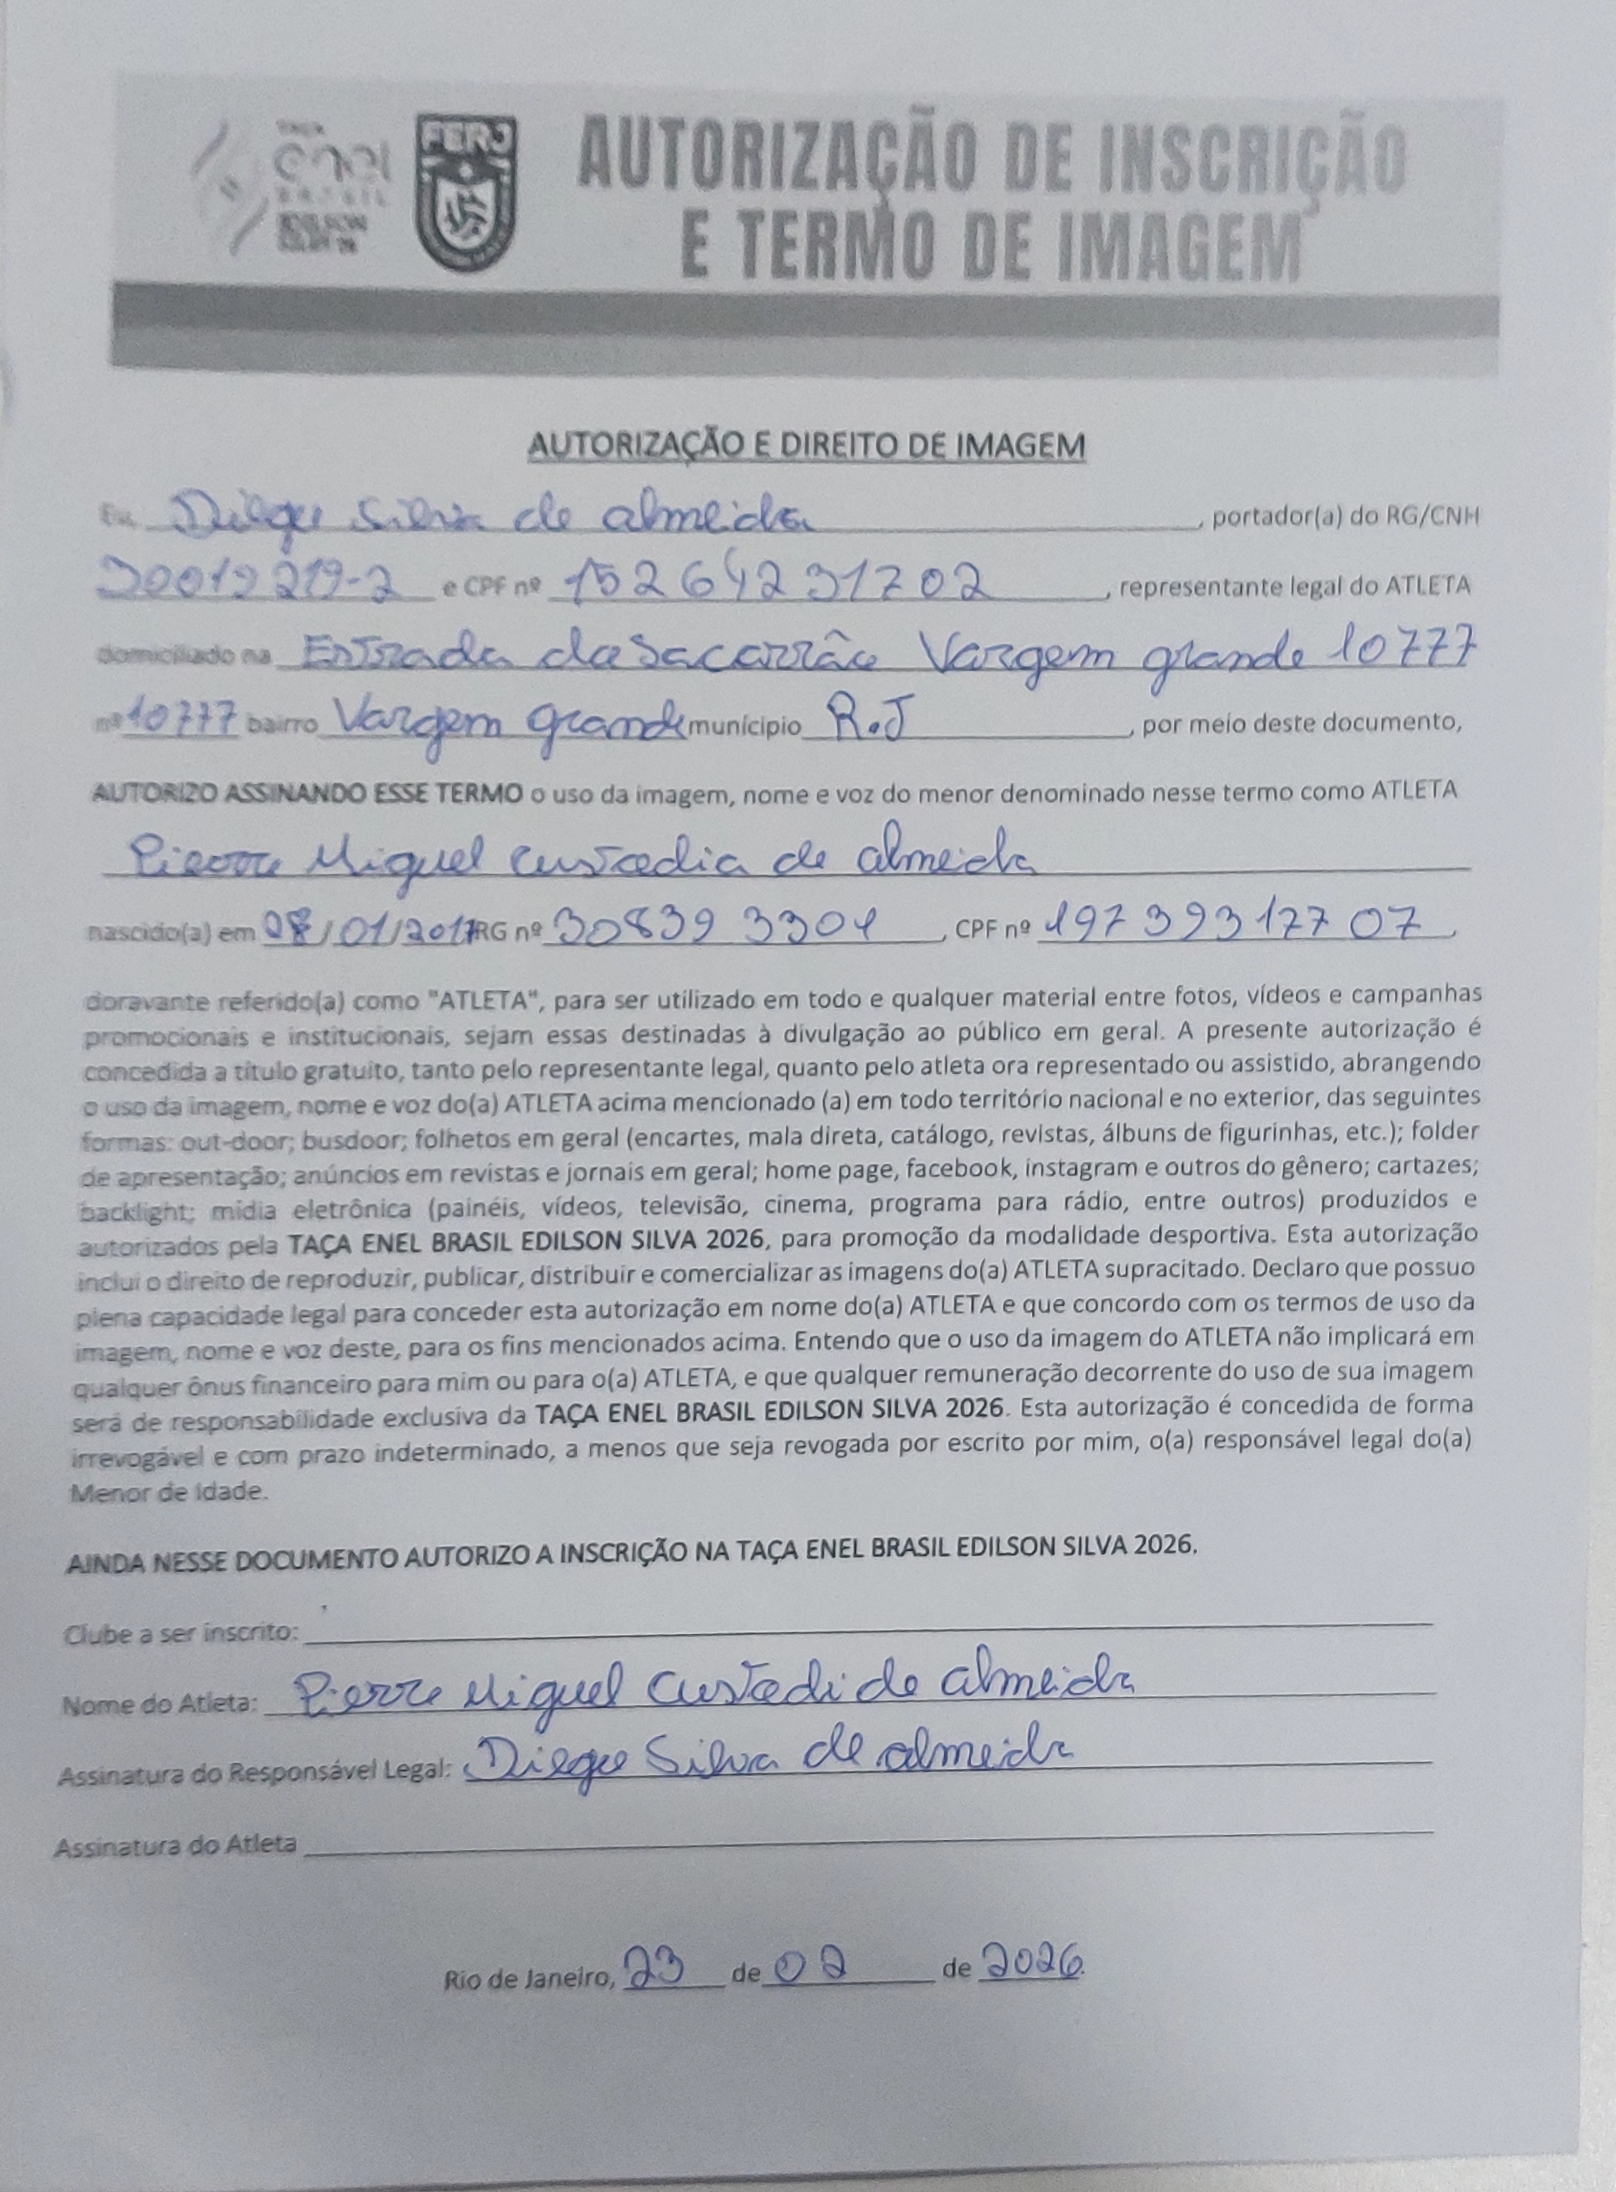 TAÇA
enel
BRASIL
EDILSON
SILVA 26
FERJ
AUTORIZAÇÃO DE INSCRIÇÃO
E TERMO DE IMAGEM
AUTORIZAÇÃO E DIREITO DE IMAGEM
Eu, Diego Silva de almeida, portador(a) do RG/CNH
30019219-2 e CPF nº 15264231702, representante legal do ATLETA
domiciliado na Estrada da Sacarrão Vargem grande 10777
nº 10777 bairro Vargem grande munícipio R.J, por meio deste documento,
AUTORIZO ASSINANDO ESSE TERMO o uso da imagem, nome e voz do menor denominado nesse termo como ATLETA
Pierre Miguel Custodia de almeida
nascido(a) em /01/2017 RG nº 30839 3304, CPF nº 197 393 177 07,
doravante referido(a) como "ATLETA", para ser utilizado em todo e qualquer material entre fotos, vídeos e campanhas
promocionais e institucionais, sejam essas destinadas à divulgação ao público em geral. A presente autorização é
concedida a título gratuito, tanto pelo representante legal, quanto pelo atleta ora representado ou assistido, abrangendo
o uso da imagem, nome e voz do(a) ATLETA acima mencionado (a) em todo território nacional e no exterior, das seguintes
formas: out-door; busdoor; folhetos em geral (encartes, mala direta, catálogo, revistas, álbuns de figurinhas, etc.); folder
de apresentação; anúncios em revistas e jornais em geral; home page, facebook, instagram e outros do gênero; cartazes;
backlight; mídia eletrônica (painéis, vídeos, televisão, cinema, programa para rádio, entre outros) produzidos e
autorizados pela TAÇA ENEL BRASIL EDILSON SILVA 2026, para promoção da modalidade desportiva. Esta autorização
inclui o direito de reproduzir, publicar, distribuir e comercializar as imagens do(a) ATLETA supracitado. Declaro que possuo
plena capacidade legal para conceder esta autorização em nome do(a) ATLETA e que concordo com os termos de uso da
imagem, nome e voz deste, para os fins mencionados acima. Entendo que o uso da imagem do ATLETA não implicará em
qualquer ônus financeiro para mim ou para o(a) ATLETA, e que qualquer remuneração decorrente do uso de sua imagem
será de responsabilidade exclusiva da TAÇA ENEL BRASIL EDILSON SILVA 2026. Esta autorização é concedida de forma
irrevogável e com prazo indeterminado, a menos que seja revogada por escrito por mim, o(a) responsável legal do(a)
Menor de Idade.
AINDA NESSE DOCUMENTO AUTORIZO A INSCRIÇÃO NA TAÇA ENEL BRASIL EDILSON SILVA 2026.
Clube a ser inscrito:
Nome do Atleta: Pierre Miguel Custodi de almeida
Assinatura do Responsável Legal: Diego Silva de almeida
Assinatura do Atleta
Rio de Janeiro, 23 de 02 de 2026.